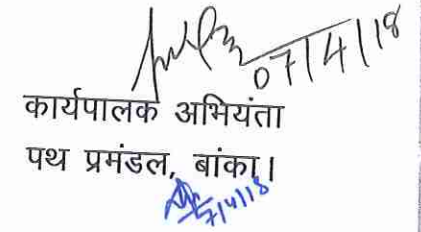 07/4/18
कार्यपालक अभियंता
पथ प्रमंडल, बांका।
7/4/18